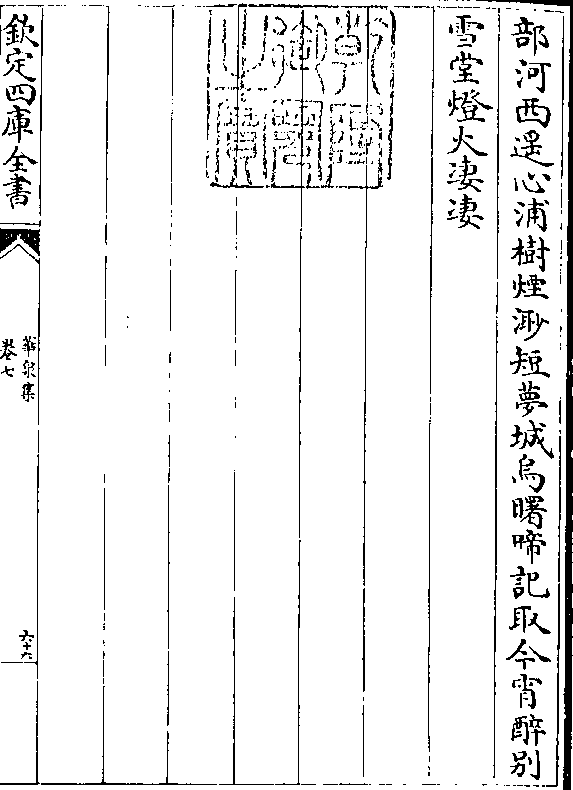 部河西遥心浦樹煙渺短夢城烏曙啼記取今宵醉别
雪堂燈火凄凄
乾隆
御覽
之寶
欽定四庫全書
華泉集
卷七
六十六